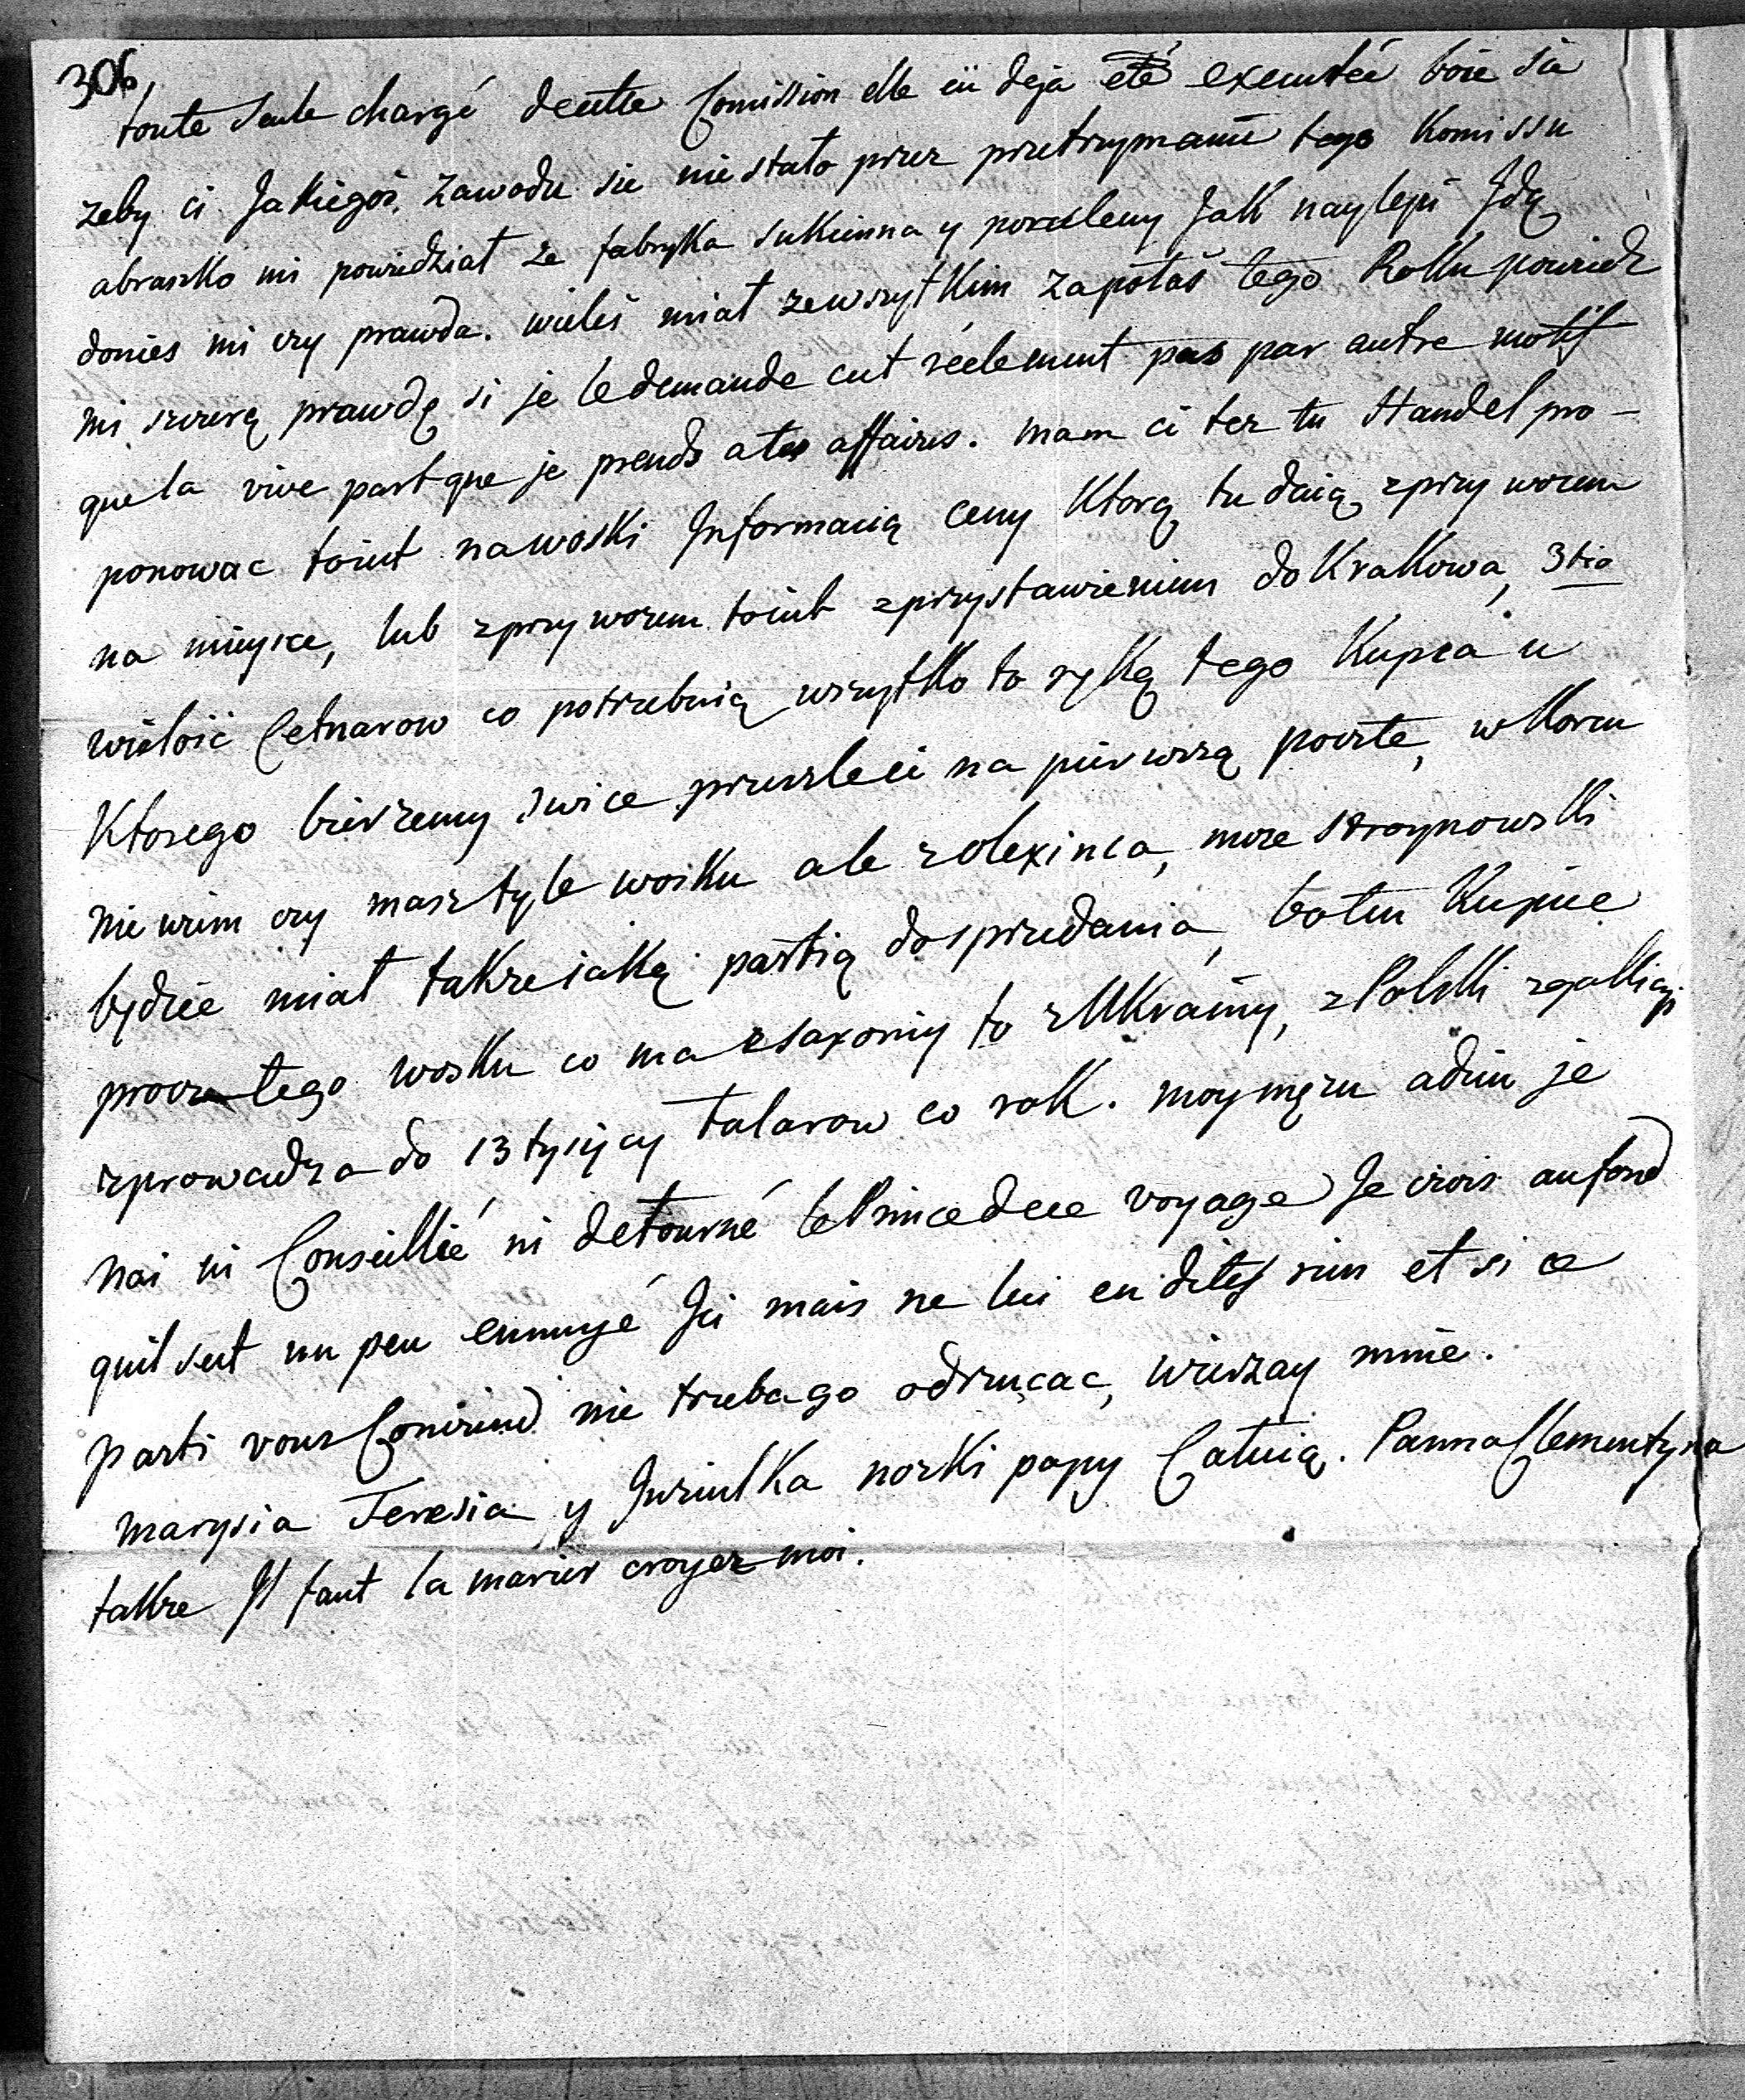 306
toute seule chargé decette Comission elle eü deja eté executeé boie sie
zeby ci Jakiegos zawodu sie niestało przez przetrzymanie tego Komissu
abraszko mi powiedział ze fabryka sukienna y porceleny Jak naylepi Jdą
donies mi czy prawda. wieleś miał zewszytkim zapłotaś tego Roku powiedz
mi szczerą prawdę si je ledemande cest réelement pas par autre motif
quela vive partque je prends ates affaires. mam ci tez tu Handel pro-
ponowac toiest nawoski Jnformacią ceny Ktorą tu daią zprzywozem
na mieysce, lub zprzywozem toiest zprzystawieniem doKrakowa, 3tio
wielość Cetnarow co potrzebuią wszytko to ręką tego Kupca u
Ktorego bierzemy swice przeszleci na pierwszą poczte,
niewiem czy masz tyle wosku ale zolexinca, moze stroynowski
będzie miał takzeiaką partią dosprzedania, botu Kupiec
procz tego wosku co ma zsaxoniy to zUkrainy, zPolski zgalliciy
zprowadza do 13 tysięcy Talarow co rok. moymęzu adieu je
nai ni Conseillié ni detourné lePrincedece voyage Je crois aufond
quil sest un peu ennuyé Jci mais ne lui en dites rien et si ce
parti vous Convient nie trzebago odrzucac, wierzay mnie.
marysia Teresia y Juziulka nozki papy Całuią. PannaClementyna
takze Jl faut la marier croyez moi.